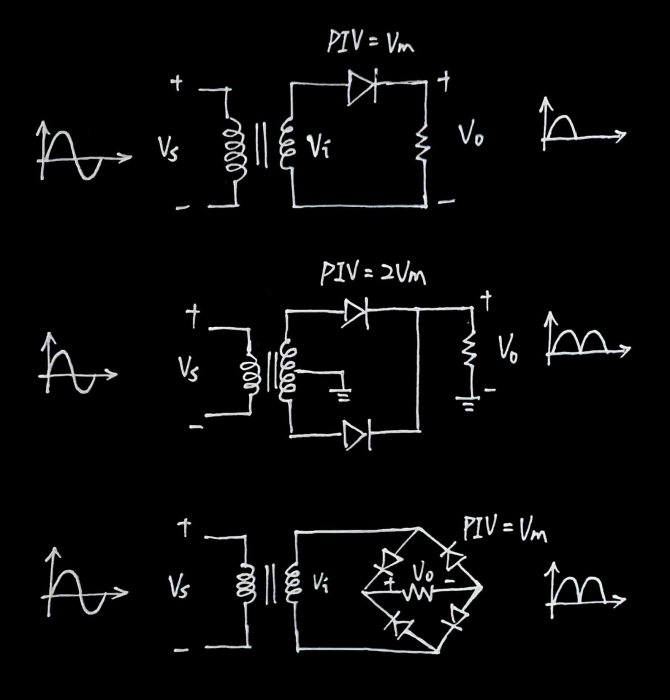 PIV = Vm
+ +
Vs Vi Vo
− −
PIV = 2Vm
+ +
Vs Vo
− −
PIV = Vm
+
Vs Vi + Vo −
−